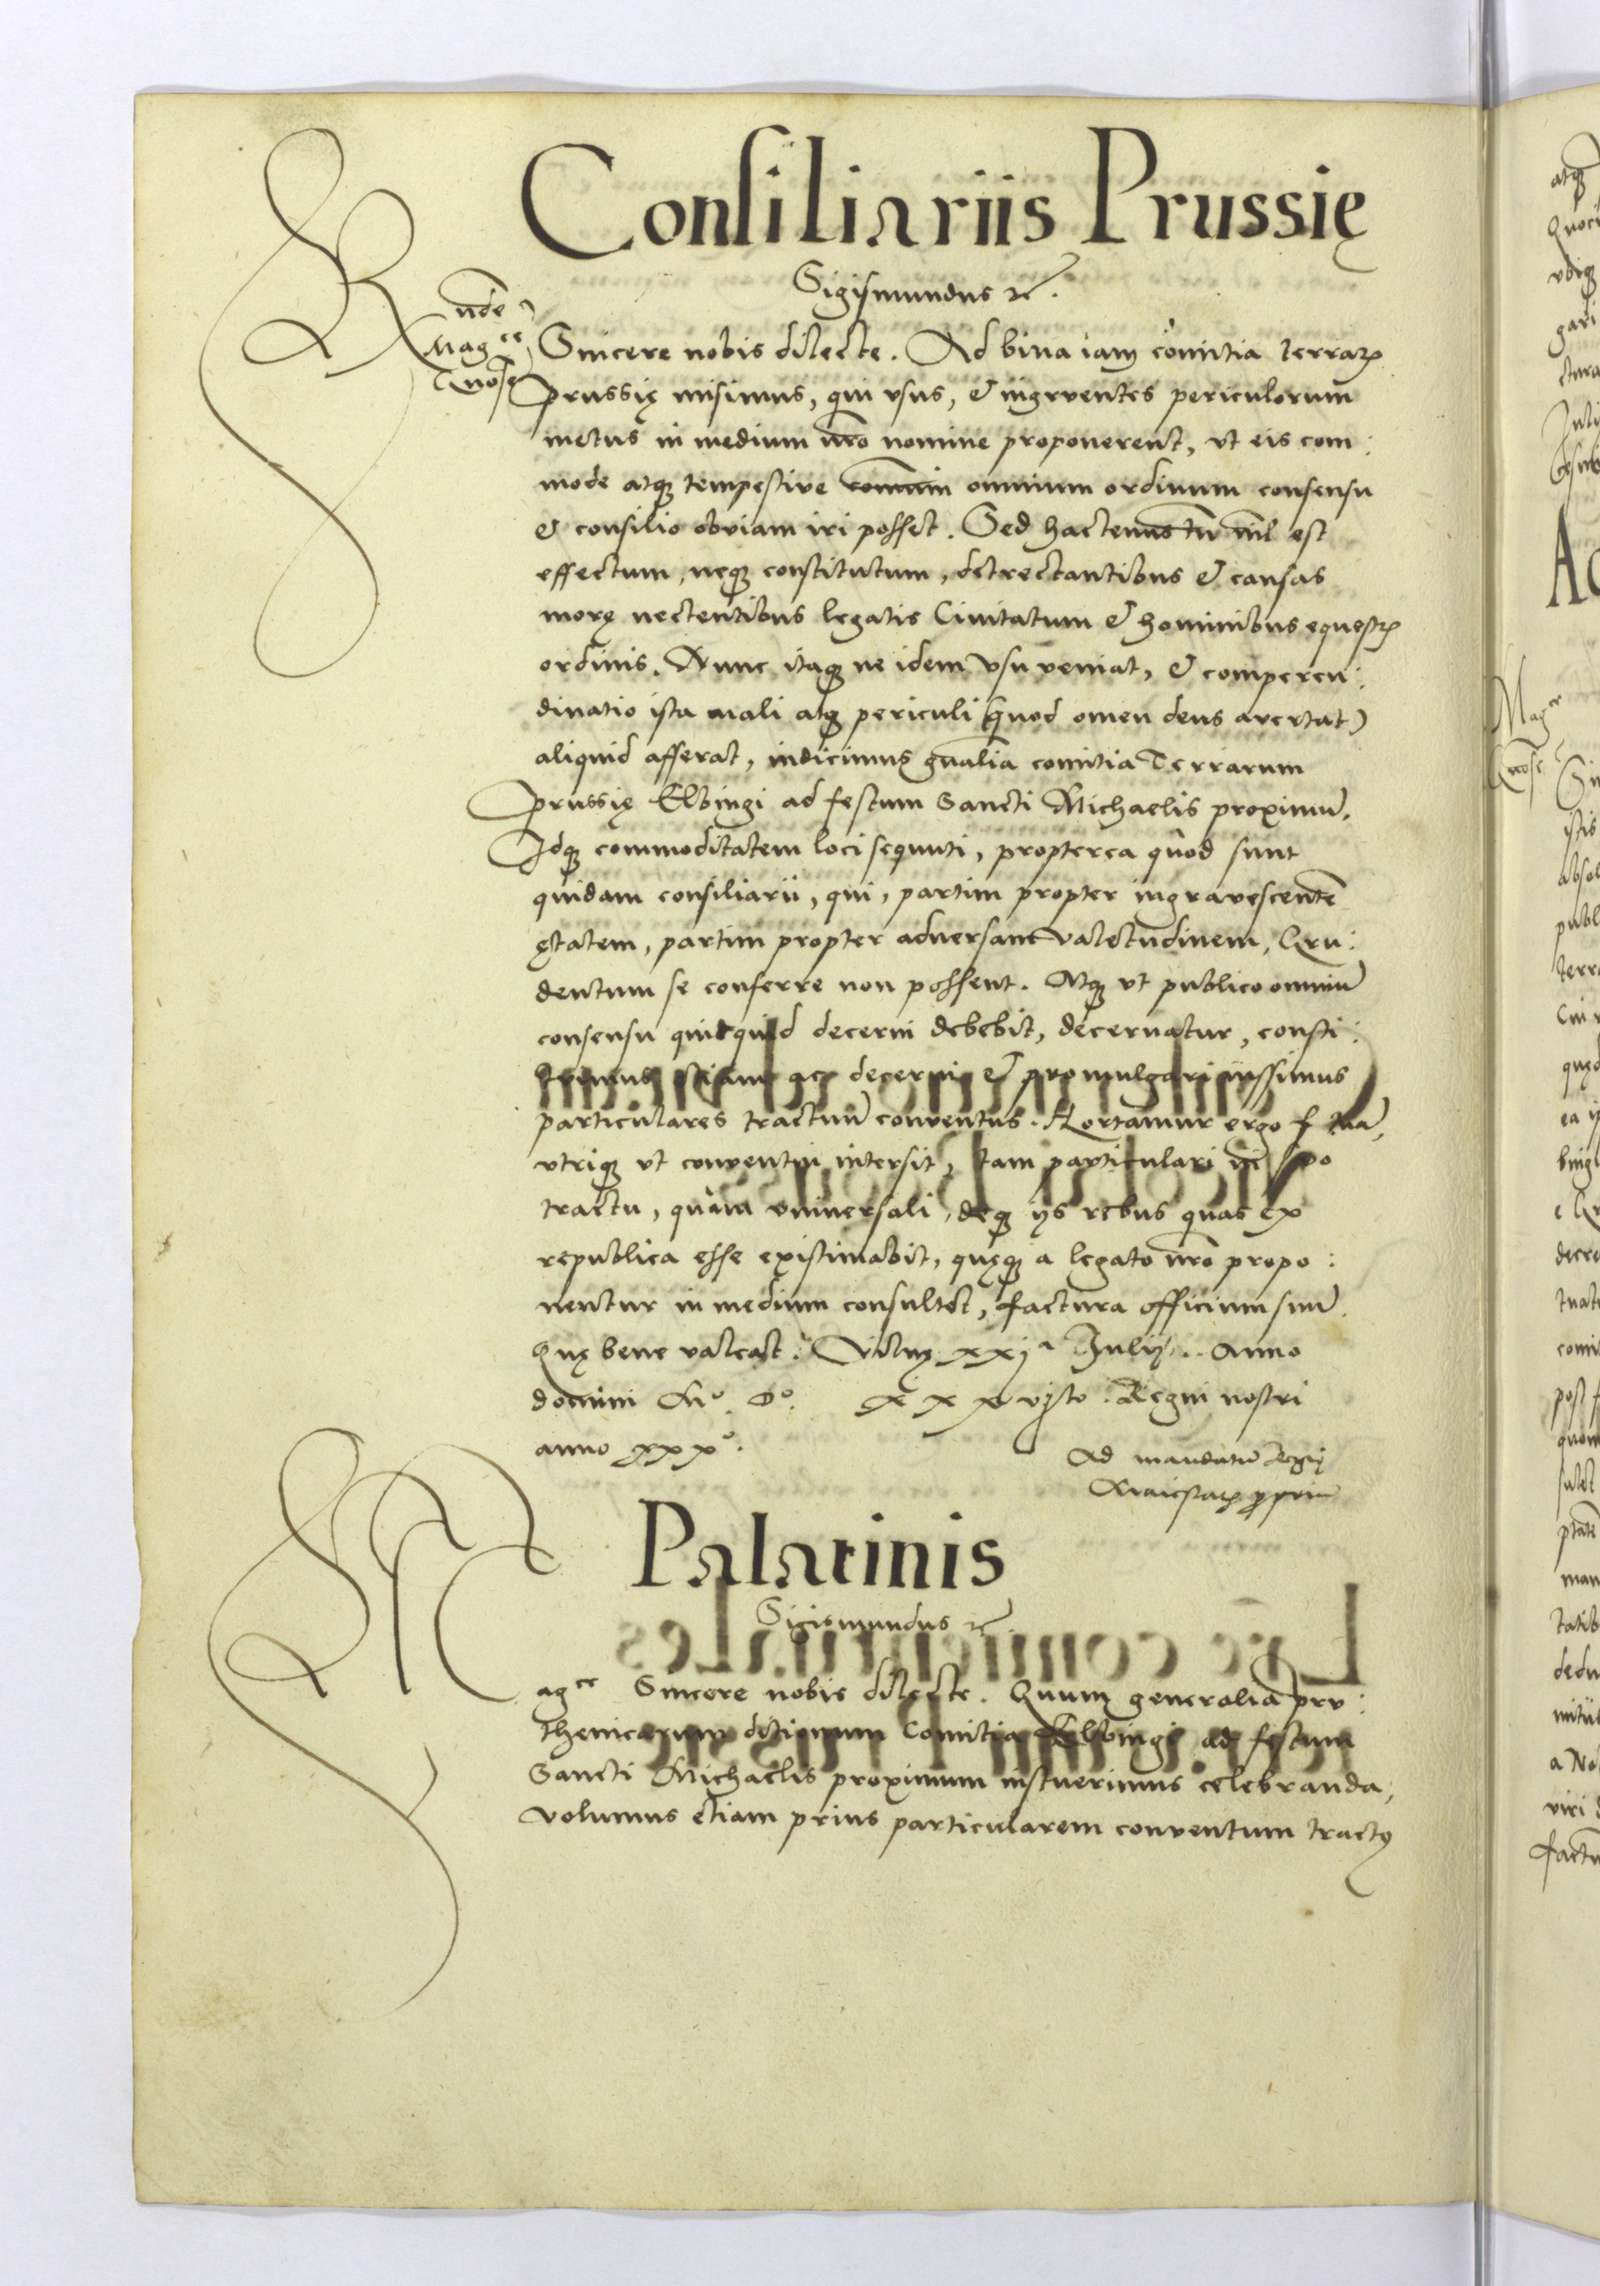 Consiliariis Prussię
Sigismundus etc.
Rnde
Magce
Gnose
Sincere nobis dilecte. Ad bina iam comitia terrarum
prussię misimus, qui usus, & ingruentes periculorum
metus in medium nro nomine proponerent, ut eis com:
mode atque tempestive omnium ordinum consensu
& consilio obviam iri posset. Sed hactenus tn nil est
effectum, neque constitutum, detrectantibus & causas
morę nectentibus legatis Civitatum & hominibus equestris
ordinis. Nunc itaque ne idem usu veniat, & comperen:
dinatio ista mali atque periculi (quod omen deus avertat)
aliquid afferat, indicimus gnalia comitia Terrarum
prussię Elbingi ad festum Sancti Michaelis proximum.
Idque commoditatem loci sequuti, propterea quod sunt
quidam consiliarii, qui, partim propter ingravescentem
ętatem, partim propter adversam valetudinem, Gru:
dentum se conferre non possent. Atque ut publico omnium
consensu quicquid decerni debebit, decernatur, consti:
tuimus etiam ac decerni & promulgari iussimus
particulares tractuum conventus. Hortamur ergo f tua,
utrique ut conventui intersit, tam particulari in
tractu, quam universali, deque iis rebus quas ex
republica esse existimabit, quęque a legato nro propo:
nentur in medium consultet, factura officium suum.
Quę bene valeat. Vilnę xxja Julij. Anno
domini Mo. Do. xxxvjto. Regni nostri
anno xxxo.
Ad mandatum Regię
Maiestatis proprium
Palatinis
Sigismundus etc.
Magce Sincere nobis dilecte. Quum generalia pru:
thenicarum ditionum Comitia Elbingi ad festum
Sancti Michaelis proximum instituerimus celebranda,
volumus etiam prius particularem conventum tractus